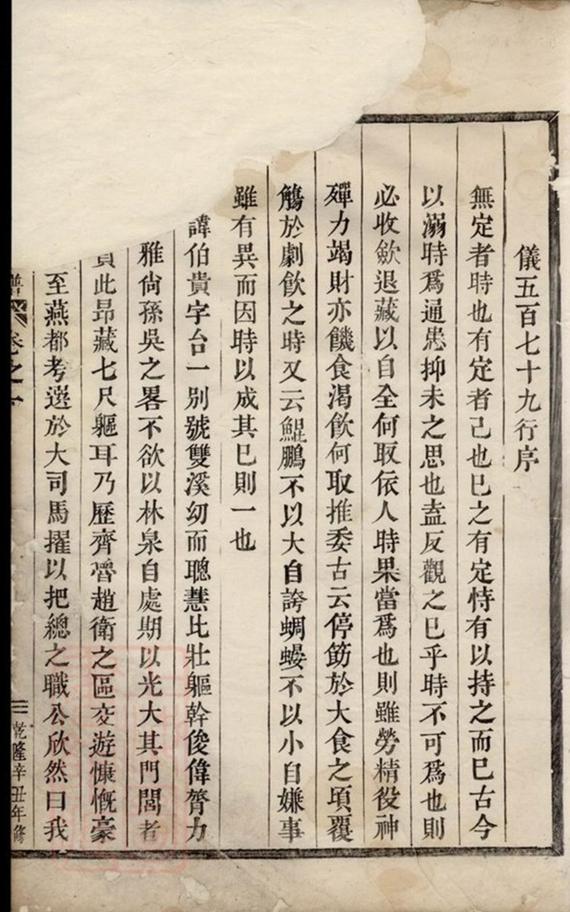 儀五百七十九行序
無定者時也有定者己也巳之有定恃有以持之而巳古今
以溺時爲通患抑未之思也盍反觀之巳乎時不可爲也則
必收歛退藏以自全何取依人時果當爲也則雖勞精役神
殫力竭財亦饑食渴飲何取推委古云停筯於大食之頃覆
觴於劇飲之時又云鯤鵬不以大自誇蜩螻不以小自嫌事
雖有異而因時以成其巳則一也
諱伯貴字台一別號雙溪幼而聰慧比壯軀幹俊偉膂力
雅尚孫吳之畧不欲以林泉自處期以光大其門閭者
負此昂藏七尺軀耳乃歷齊魯趙衛之區交遊慷慨豪
至燕都考選於大司馬擢以把總之職公欣然曰我
譜 卷之
乾隆辛丑年修